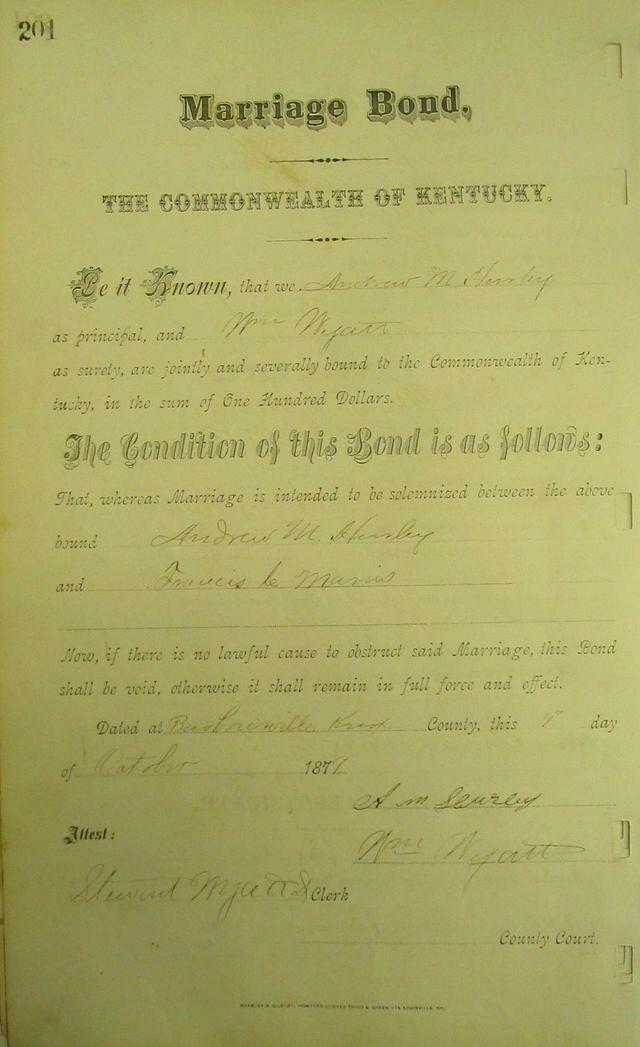 201
Marriage Bond.
THE COMMONWEALTH OF KENTUCKY.
Be it Known, that we Andrew M Hensley
as principal, and Wm Wyatt
as surety, are jointly and severally bound to the Commonwealth of Ken-
tucky, in the sum of One Hundred Dollars.
The Condition of this Bond is as follows:
That, whereas Marriage is intended to be solemnized between the above
bound Andrew M. Hensley
and Francis C
Now, if there is no lawful cause to obstruct said Marriage, this Bond
shall be void, otherwise it shall remain in full force and effect.
Dated at Barbourville Knox County, this day
of October 187
A M
Attest: Wm Wyatt
Stewart Wyatt Clerk
County Court.